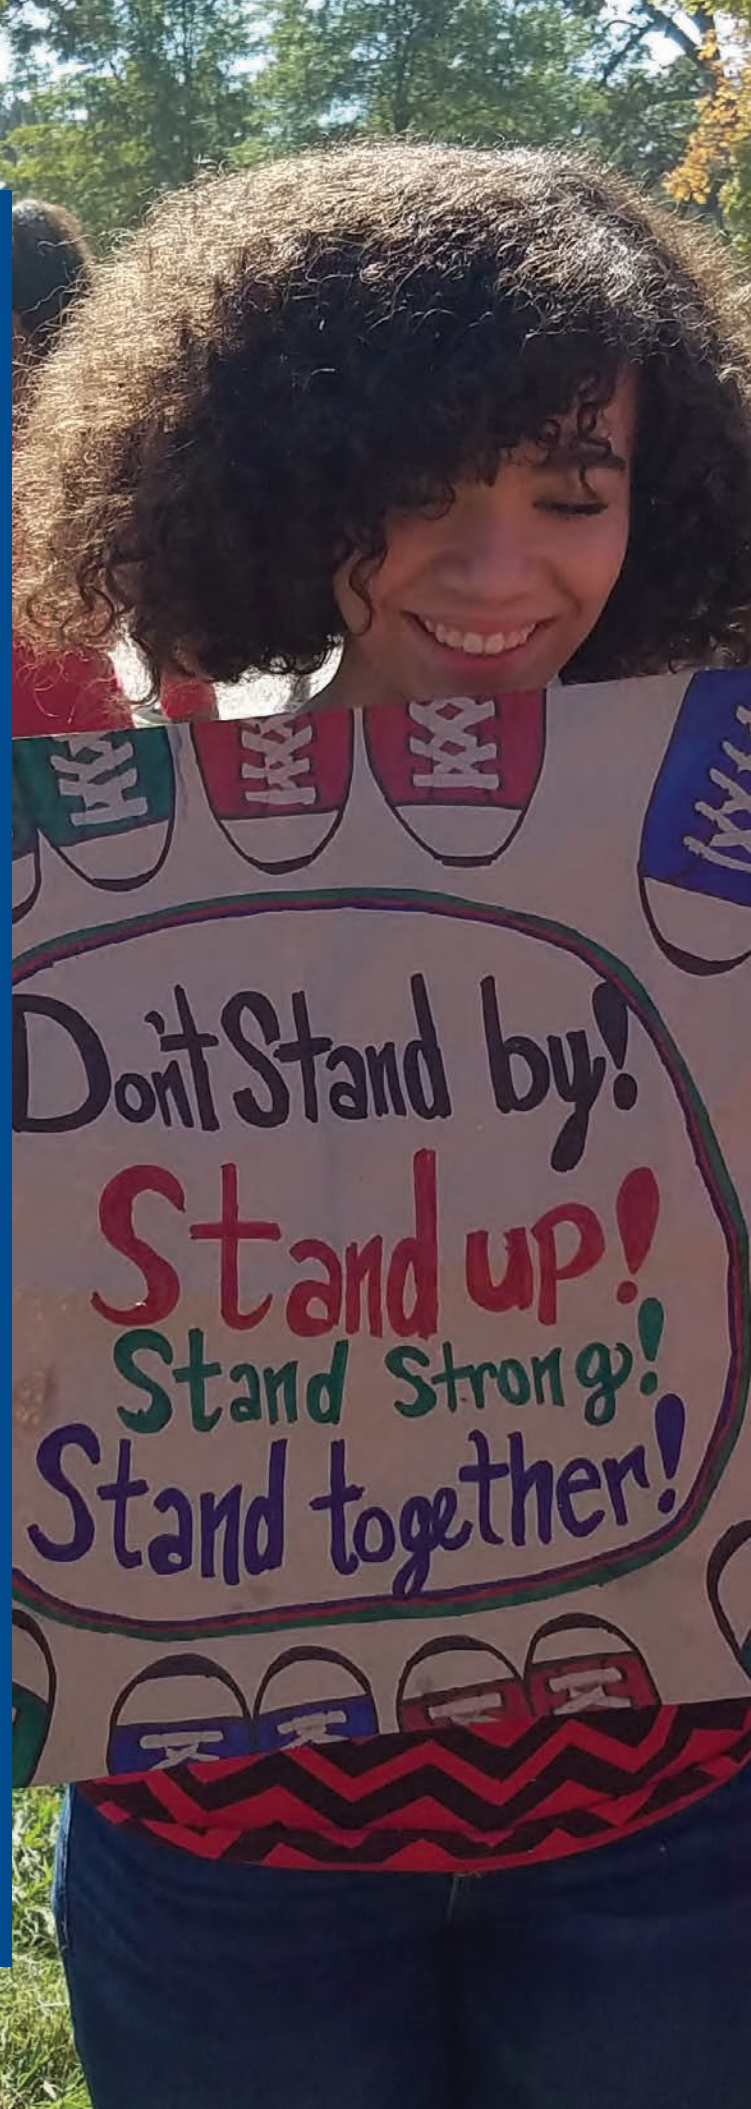 Don't Stand by!
Stand up!
Stand Strong!
Stand together!